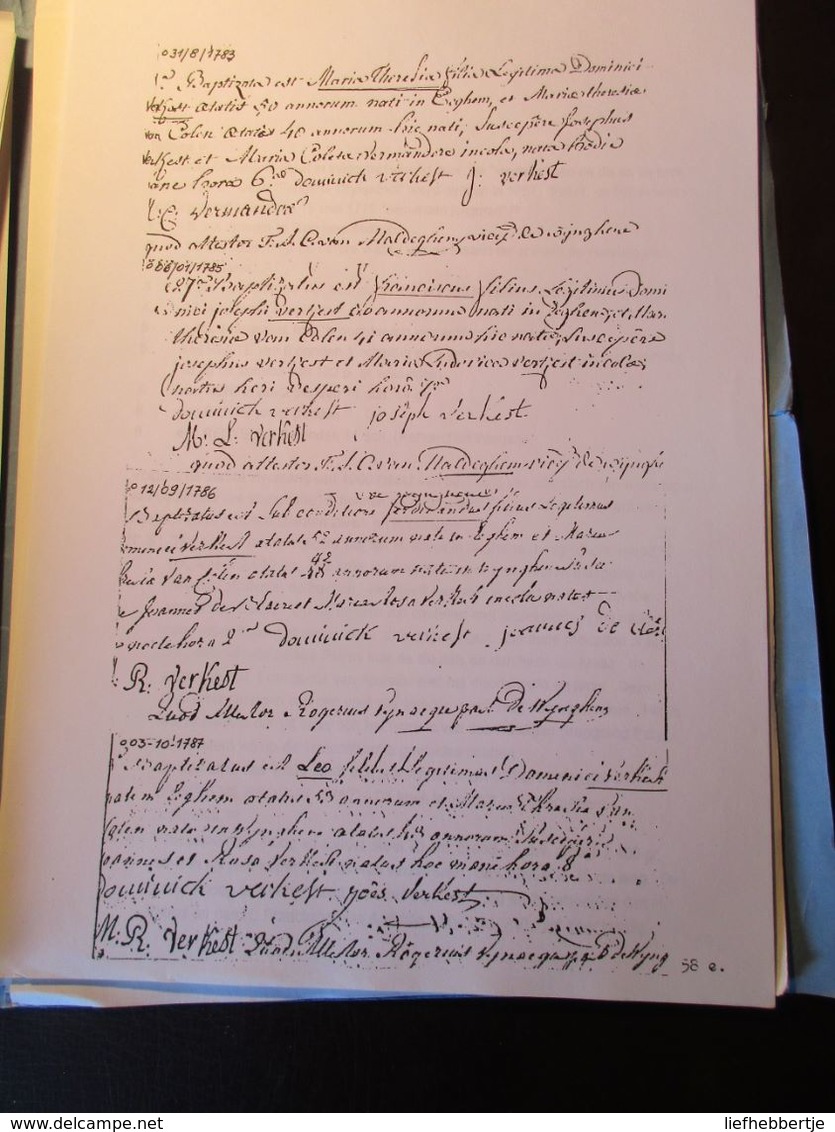 o 31/8/1783
Baptizata est Maria Theresia filia Legitima Dominici
verkest ætatis 50 annorum nati in Eeghem, et Mariæ theresiæ
van Colen ætatis 40 annorum hic nati, Suscepere Josephus
verkest et Maria Coleta vermandere incolæ, nata hodie
mane hora 6.a dominick verkest J: verkest
C: vermandere
quod attestor F.J.C. van Maldeghem vicep de wijnghene
o 06/01/1785
27 Baptizatus est franciscus filius Legitimus domi
nici josephi verkest annorum nati in Eeghem, et Mar
theresiæ van Colen 41 annorum hic nati, Suscepere
josephus verkest et Maria Ludovica verkest incolæ,
natus heri vesperi hora
dominick verkest joseph verkest
M: L: verkest
quod attestor F.J.C. van Maldeghem vicep de wijnghe
o 12/09/1786
Baptizatus est Sub conditione ferdinandus filius Legitimus
verkest ætatis 52 annorum nati in Eeghem et Mariæ
van Colen ætatis 42 annorum natæ in wynghene
Joannes de et Maria Rosa verkest incolæ natus
nocte hora 2 dominick verkest joannes de
R: verkest
Quod Attestor Rogerius Synaeque past. De Wynghene
o 03-10-1787
Baptizatus est Leo filius Legitimus Dominici verkest
nati in Eeghem ætatis 53 annorum et Mariæ van
Colen natæ in wynghene ætatis annorum Suscepere
Joannes et Rosa verkest natus hoc mane hora 8
Dominick verkest joës verkest
M: R: verkest Quod Attestor Rogerius Synaeque p. De Wyng
58 e.
liefhebbertje